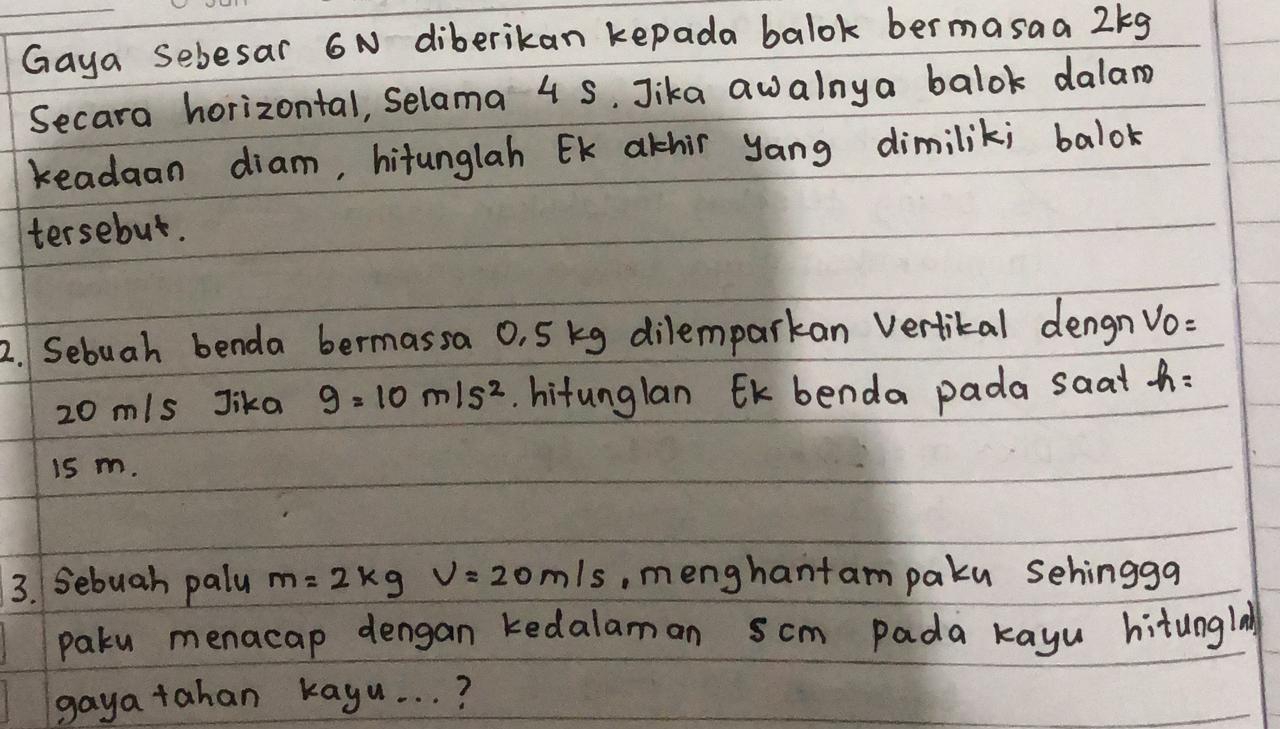 Gaya sebesar 6N diberikan kepada balok bermasaa 2kg
Secara horizontal, Selama 4 s. Jika awalnya balok dalam
keadaan diam, hitunglah Ek akhir yang dimiliki balok
tersebut.
2. Sebuah benda bermassa 0,5 kg dilemparkan Vertikal dengn Vo=
20 m/s Jika g=10 m/s². hitunglan Ek benda pada saat h=
15 m.
3. Sebuah palu m=2kg V=20m/s, menghantam paku sehingga
paku menacap dengan kedalaman 5 cm pada kayu hitunglah
gaya tahan kayu...?